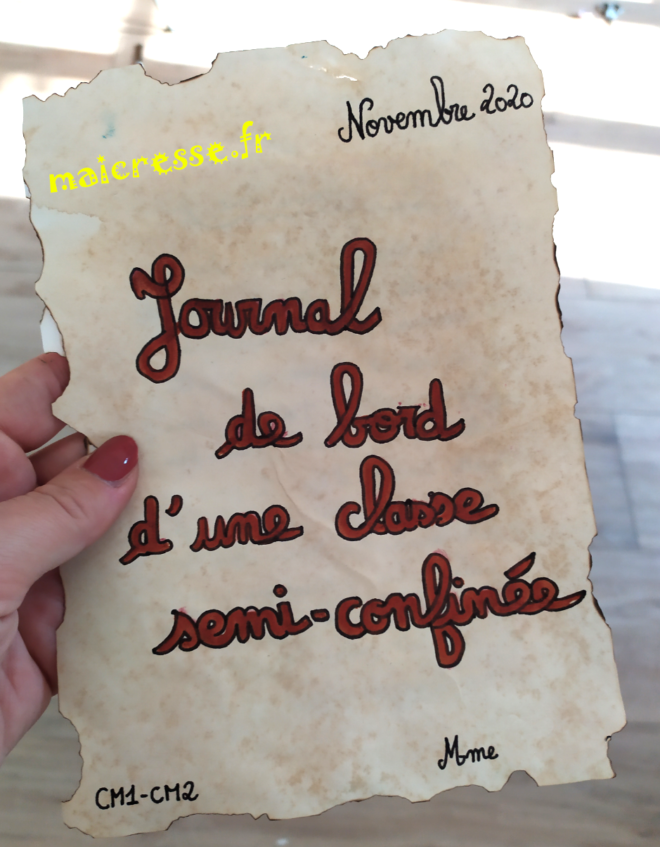 Novembre 2020
maicresse.fr
Journal
de bord
d'une classe
semi-confinée
Mme
CM1-CM2